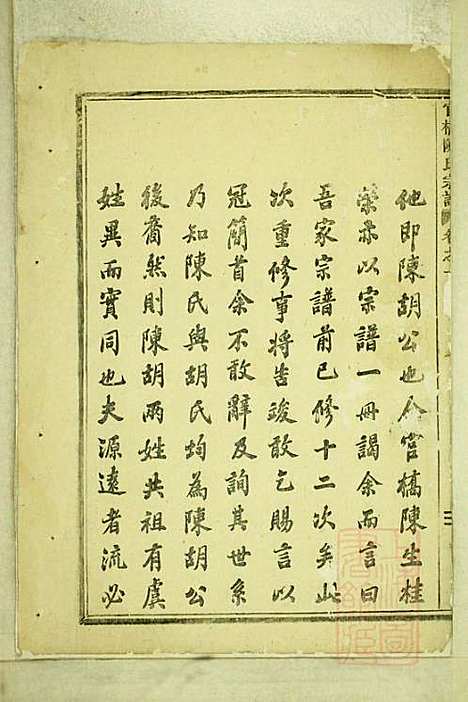 官橋陳氏宗譜
他即陳胡公也今官橋陳生桂
榮亦以宗譜一冊謁余而言曰
吾家宗譜前已修十二次矣此
次重修事將告竣敢乞賜言以
冠簡首余不敢辭及詢其世系
乃知陳氏與胡氏均為陳胡公
後裔然則陳胡兩姓共祖有虞
姓異而實同也夫源遠者流必